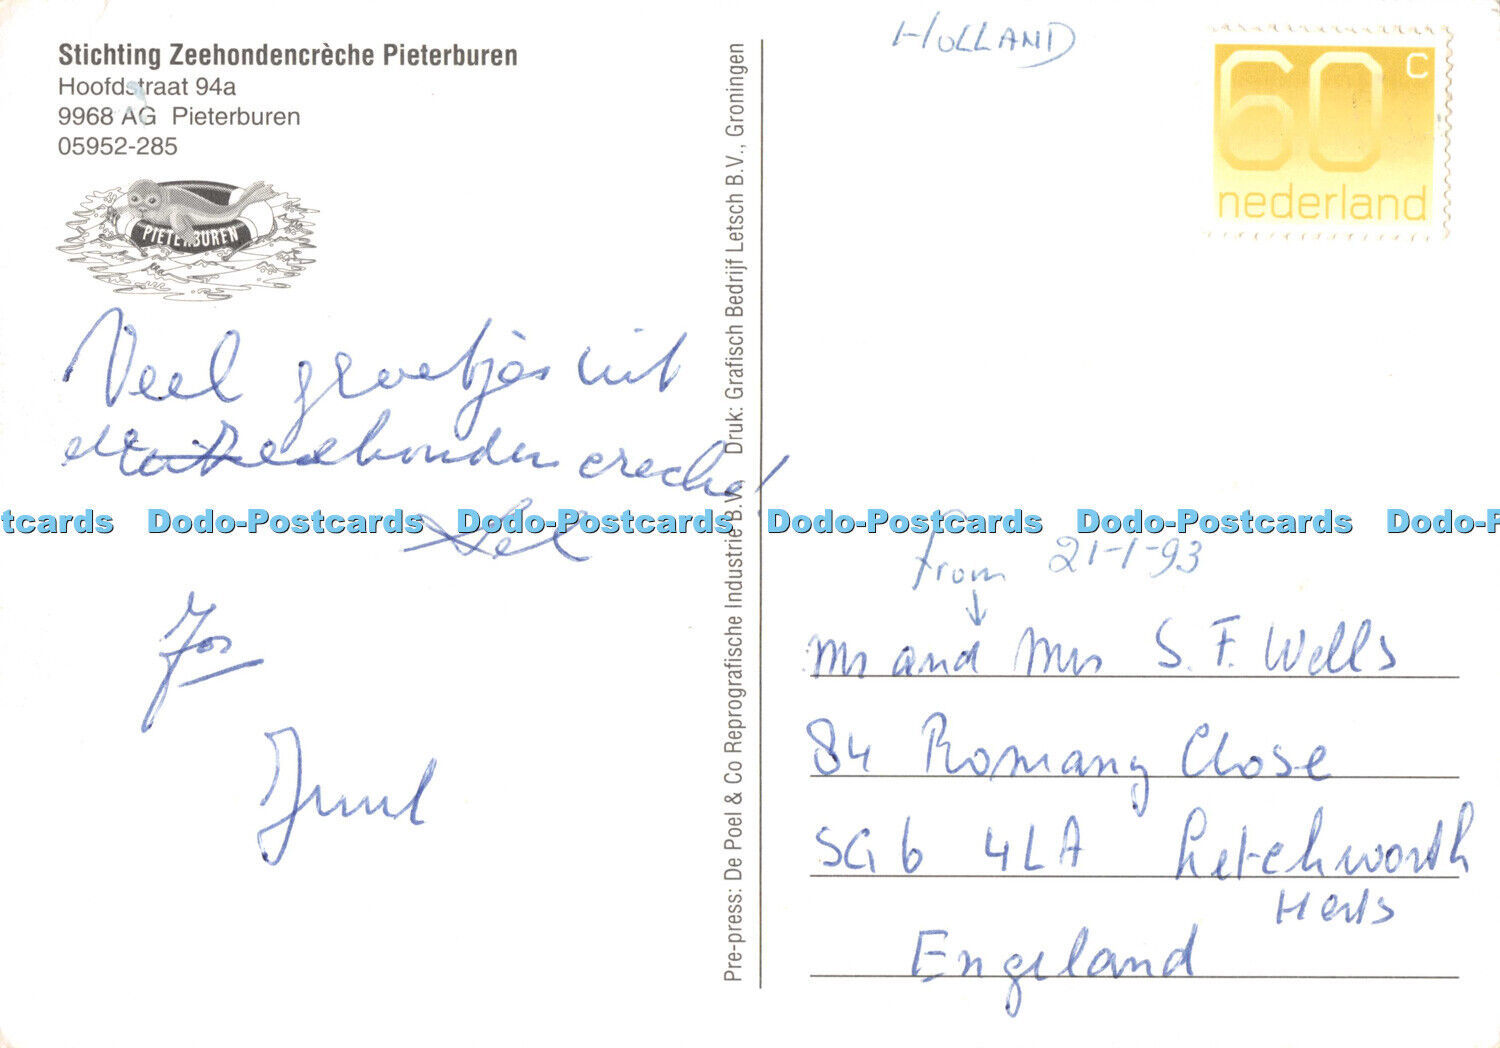 Stichting Zeehondencrèche Pieterburen
Hoofdstraat 94a
9968 AG Pieterburen
05952-285
PIETERBUREN
Veel groetjes uit
de Zeehonden creche!
Jos
Juul
Pre-press: De Poel & Co Reprografische Industrie B.V. Druk: Grafisch Bedrijf Letsch B.V., Groningen
HOLLAND
60 c
nederland
tcards Dodo-Postcards Dodo-Postcards Dodo-Postcards Dodo-Postcards Dodo-P
From 21-1-93
Mr and Mrs S. F. Wells
84 Romany Close
SG6 4LA Letchworth
Herts
Engeland